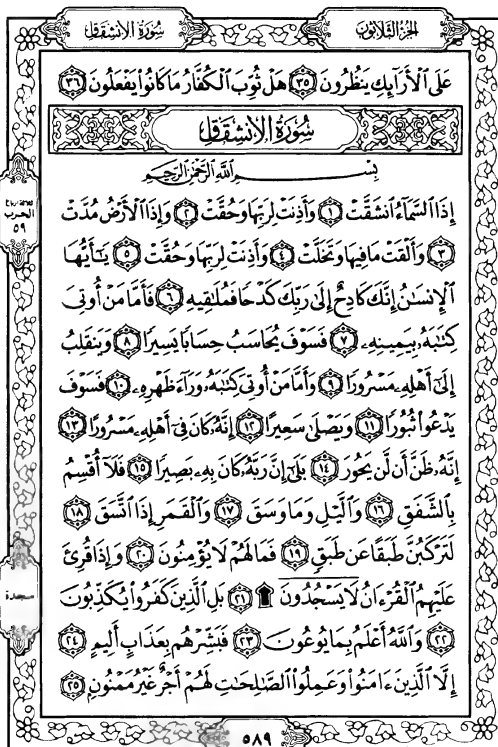 الجزء الثلاثون
سورة الانشقاق
على الأرآئك ينظرون ٣٥ هل ثوب الكفار ما كانوا يفعلون ٣٦
سورة الانشقاق
بسم الله الرحمن الرحيم
إِذَا ٱلسَّمَآءُ ٱنشَقَّتْ ١ وَأَذِنَتْ لِرَبِّهَا وَحُقَّتْ ٢ وَإِذَا ٱلْأَرْضُ مُدَّتْ
٣ وَأَلْقَتْ مَا فِيهَا وَتَخَلَّتْ ٤ وَأَذِنَتْ لِرَبِّهَا وَحُقَّتْ ٥ يَـٰٓأَيُّهَا
ٱلْإِنسَـٰنُ إِنَّكَ كَادِحٌ إِلَىٰ رَبِّكَ كَدْحًا فَمُلَـٰقِيهِ ٦ فَأَمَّا مَنْ أُوتِىَ
كِتَـٰبَهُۥ بِيَمِينِهِۦ ٧ فَسَوْفَ يُحَاسَبُ حِسَابًا يَسِيرًا ٨ وَيَنقَلِبُ
إِلَىٰٓ أَهْلِهِۦ مَسْرُورًا ٩ وَأَمَّا مَنْ أُوتِىَ كِتَـٰبَهُۥ وَرَآءَ ظَهْرِهِۦ ١٠ فَسَوْفَ
يَدْعُوا۟ ثُبُورًا ١١ وَيَصْلَىٰ سَعِيرًا ١٢ إِنَّهُۥ كَانَ فِىٓ أَهْلِهِۦ مَسْرُورًا ١٣
إِنَّهُۥ ظَنَّ أَن لَّن يَحُورَ ١٤ بَلَىٰٓ إِنَّ رَبَّهُۥ كَانَ بِهِۦ بَصِيرًا ١٥ فَلَآ أُقْسِمُ
بِٱلشَّفَقِ ١٦ وَٱلَّيْلِ وَمَا وَسَقَ ١٧ وَٱلْقَمَرِ إِذَا ٱتَّسَقَ ١٨
لَتَرْكَبُنَّ طَبَقًا عَن طَبَقٍ ١٩ فَمَا لَهُمْ لَا يُؤْمِنُونَ ٢٠ وَإِذَا قُرِئَ
عَلَيْهِمُ ٱلْقُرْءَانُ لَا يَسْجُدُونَ ۩ ٢١ بَلِ ٱلَّذِينَ كَفَرُوا۟ يُكَذِّبُونَ
٢٢ وَٱللَّهُ أَعْلَمُ بِمَا يُوعُونَ ٢٣ فَبَشِّرْهُم بِعَذَابٍ أَلِيمٍ ٢٤
إِلَّا ٱلَّذِينَ ءَامَنُوا۟ وَعَمِلُوا۟ ٱلصَّـٰلِحَـٰتِ لَهُمْ أَجْرٌ غَيْرُ مَمْنُونٍۭ ٢٥
الحزب
٥٩
سجدة
٥٨٩